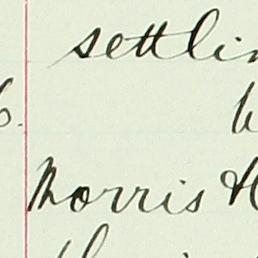 settlin
6.
Morris H